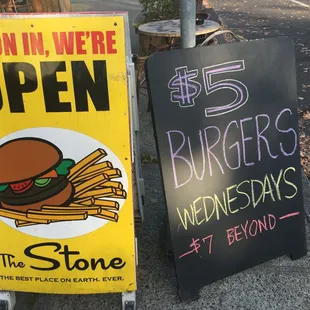 ON IN, WE'RE
OPEN
The Stone
THE BEST PLACE ON EARTH. EVER.
$5
BURGERS
WEDNESDAYS
-$7 BEYOND-